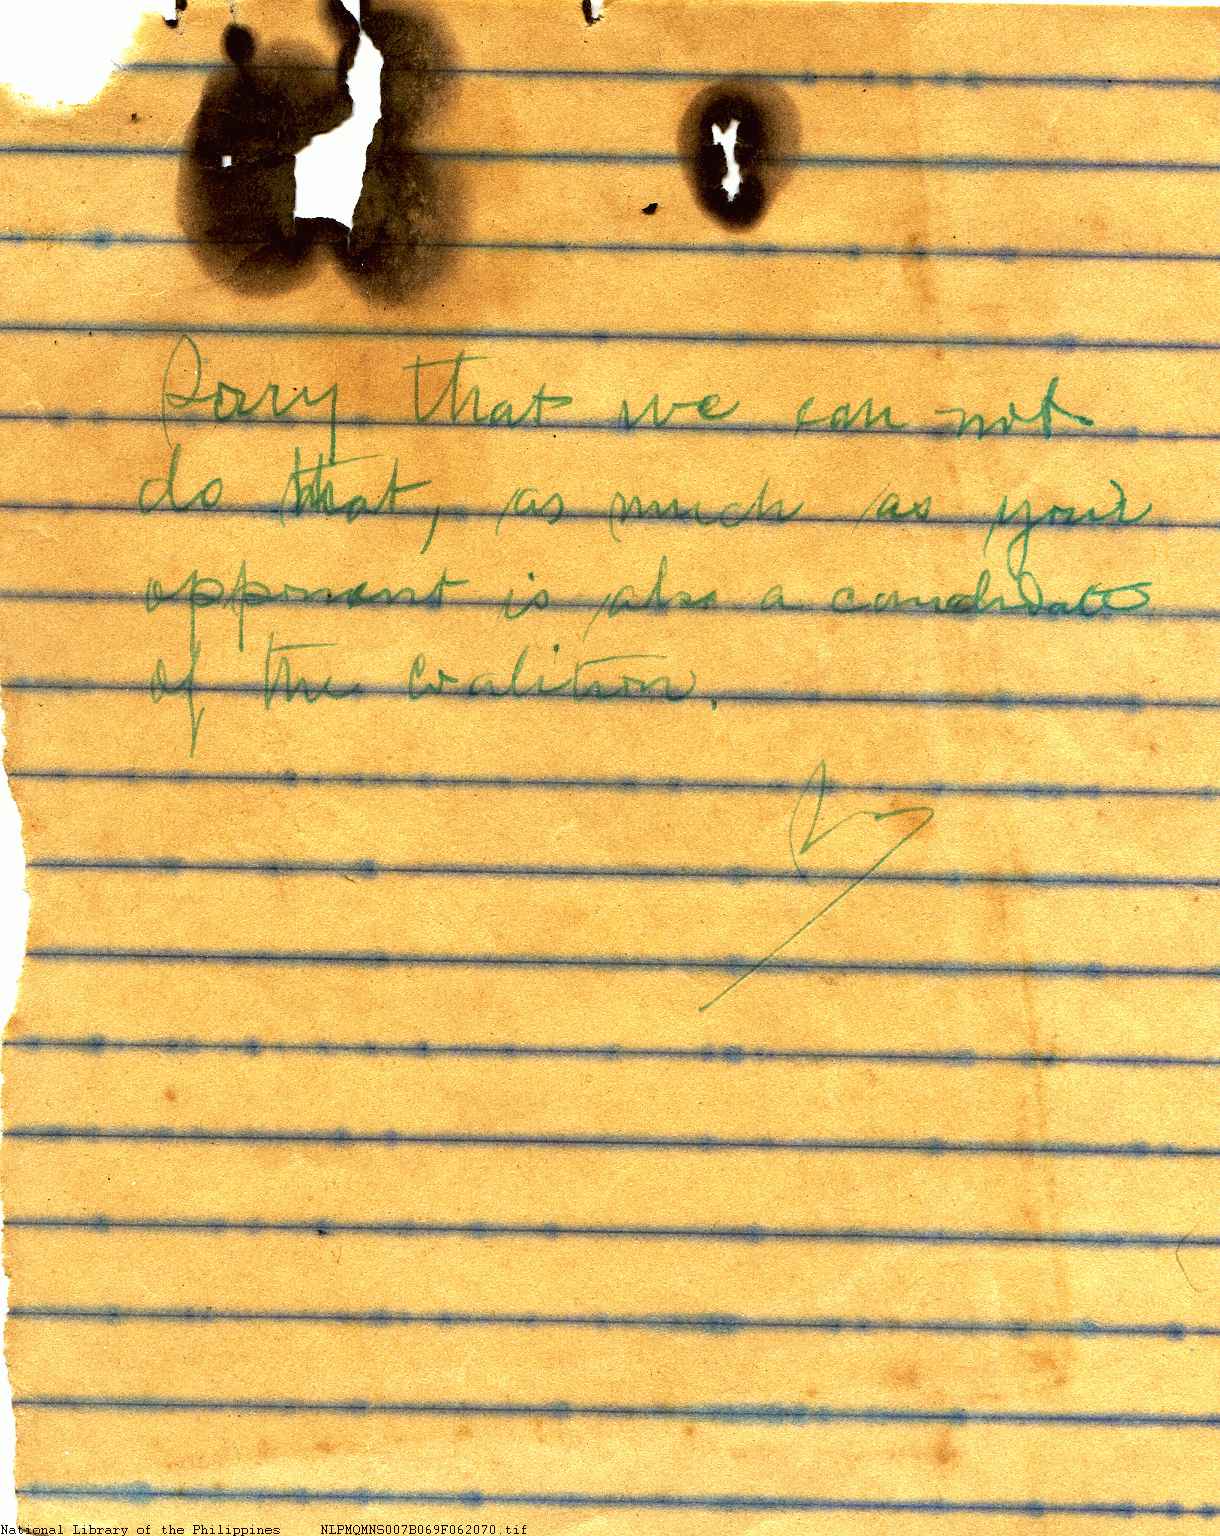 Sorry that we can not
do that, as much as your
opponent is also a candidate
of the coalition.
National Library of the Philippines NLPMQMNS007B069F062070.tif